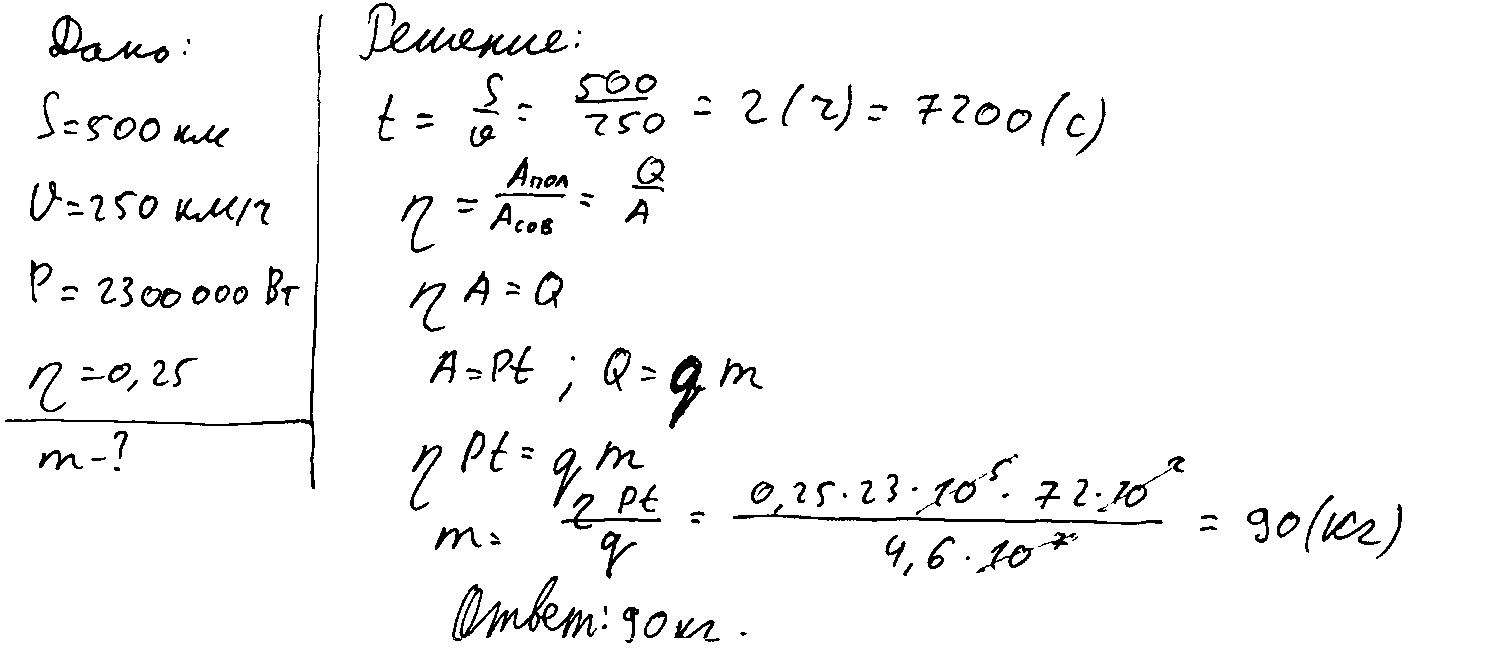 Дано:
S=500 км
v=250 км/ч
P=2300000 Вт
η=0,25
m-?
Решение:
t = S/v = 500/250 = 2(ч) = 7200(с)
η = Aпол/Aсов = Q/A
ηA=Q
A=Pt ; Q=qm
ηPt=qm
m= ηPt/q = 0,25·23·10⁵·72·10²/4,6·10⁷ = 90(кг)
Ответ: 90кг.